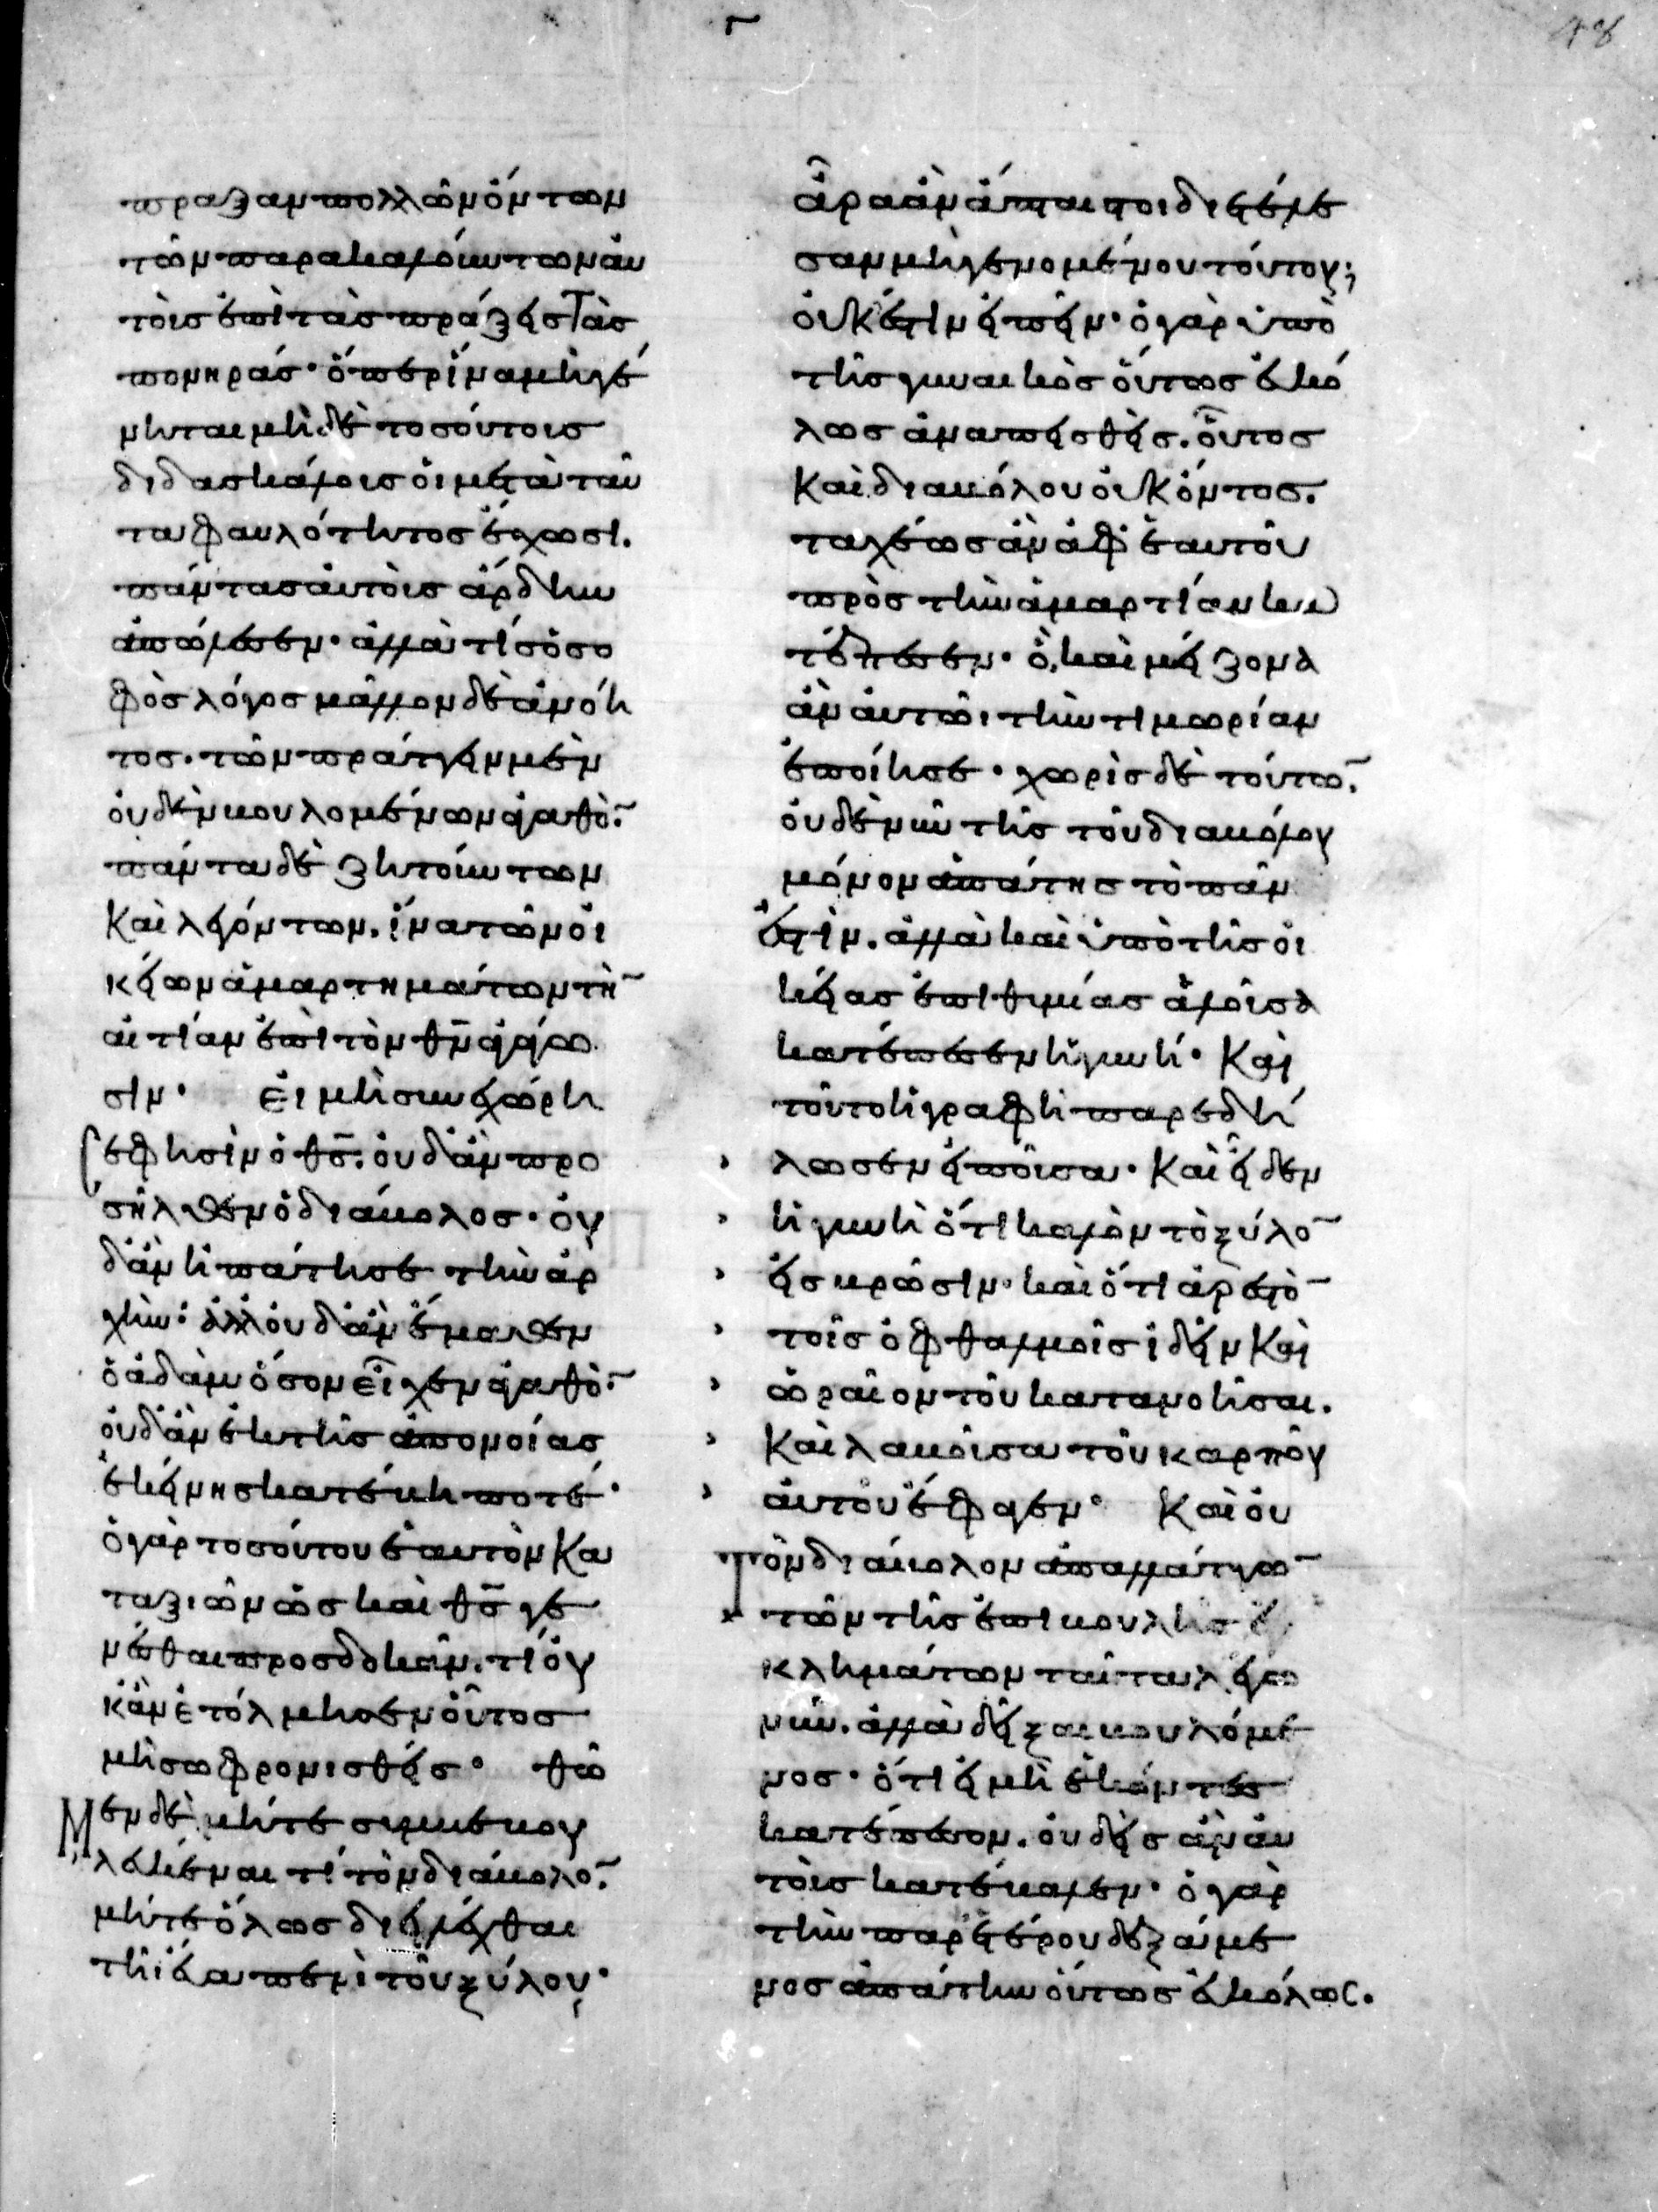 48
πραξαν πολλῶν ὄντων
τῶν παρακαλούντων αὐ
τοὺς ἐπὶ τὰς πράξεις τὰς
πονηράς· ὅπερ ἵνα μὴ γέ
νηται μηδὲ τοσούτοις
διδασκάλοις οἱ μετὰ ταῦ
τα φαυλότητος ἔχωσι.
πάντας αὐτοὺς ἄρδην
ἀπώλεσεν· ἀλλὰ τίς ὁ σο
φὸς λόγος μᾶλλον δὲ ἀνόη
τος. τῶν πράττειν μὲν
οὐδὲν βουλομένων ἀγαθὸν.
πάντα δὲ ζητούντων
καὶ λεγόντων. ἵνα τῶν οἰ
κείων ἁμαρτημάτων τὴν
αἰτίαν ἐπὶ τὸν θν̄ ἀγάγω
σιν· Εἰ μὴ συνεχώρη
σε φησὶν ὁ θς̄. οὐδ' ἂν προ
σῆλθεν ὁ διάβολος· οὐ
δ' ἂν ἠπάτησε τὴν ἀρ
χήν· ἀλλ' οὐδ' ἂν ἔμαθεν
ὁ ἀδὰμ ὅσον εἶχεν ἀγαθὸν.
οὐδ' ἂν ἐκ τῆς ἀπονοίας
ἐκείνης κατέβη ποτέ·
ὁ γὰρ τοσούτου ἑαυτὸν κα
ταξιῶν ὡς καὶ θς̄ γε
νέσθαι προσδοκᾶν. τί οὐ
κ ἂν ἐτόλμησεν οὗτος
μὴ σωφρονισθείς· θῶ
μεν δὲ μήτε συμβεβου
λευκέναι τί τὸν διάβολον.
μήτε ὅλως διειλέχθαι
τῆι εὔα περὶ τοῦ ξύλου·
ἆρα ἂν ἀπάται τοι διετέλε
σαν μὴ γενομένου τούτου;
οὐκ ἔστιν εἰπεῖν· ὁ γὰρ ὑπὸ
τῆς γυναικὸς οὕτως εὐκό
λως ἀναπεισθείς. οὗτος
καὶ διαβόλου οὐκ ὄντος.
ταχέως ἂν ἀφ' ἑαυτοῦ
πρὸς τὴν ἁμαρτίαν κα
τέπεσεν· ὃ καὶ μείζονα
ἂν αὐτῶι τὴν τιμωρίαν
ἐποίησε· χωρὶς δὲ τούτων.
οὐδὲ νῦν τῆς τοῦ διαβόλου
μόνον ἀπάτης τὸ πᾶν
ἐστὶν. ἀλλὰ καὶ ὑπὸ τῆς οἰ
κείας ἐπιθυμίας ἁλοῦσα
κατέπεσεν ἡ γυνή· Καὶ
τοῦτο ἡ γραφὴ παρεδή
λωσεν εἰποῦσα· Καὶ εἶδεν
ἡ γυνὴ ὅτι καλὸν τὸ ξύλον
εἰς βρῶσιν· καὶ ὅτι ἀρεστὸν
τοῖς ὀφθαλμοῖς ἰδεῖν καὶ
ὡραῖον τοῦ κατανοῆσαι.
Καὶ λαβοῦσα τοῦ καρποῦ
αὐτοῦ ἔφαγεν· Καὶ οὐ
τὸν διάβολον ἀπαλλάττων
τῶν τῆς ἐπιβουλῆς ἐγ
κλημάτων ταῦτα λέγω
νῦν. ἀλλὰ δεῖξαι βουλόμε
νος· ὅτι εἰ μὴ ἑκόντες
κατέπεσον. οὐδεὶς ἂν αὐ
τοὺς κατέβαλεν· ὁ γὰρ
τὴν παρ' ἑτέρου δεξάμε
νος ἀπάτην οὕτως εὐκόλως.